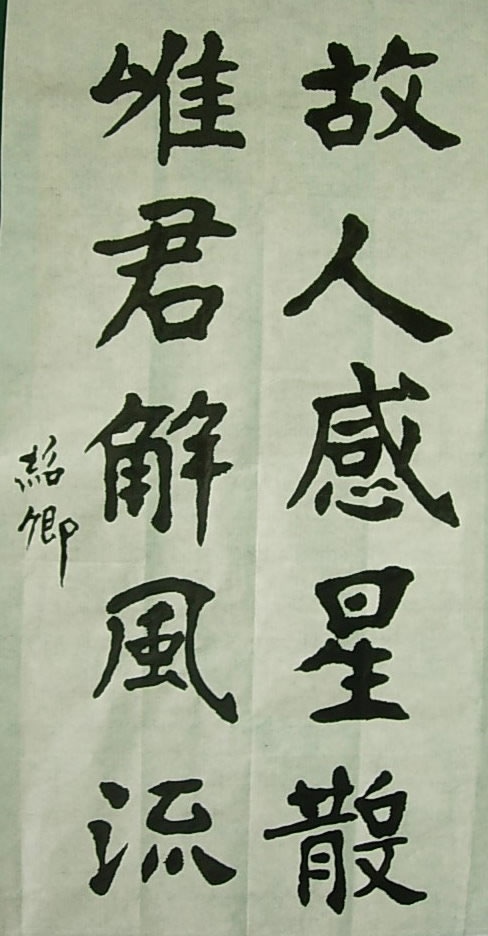 故人感星散
唯君解風流
紹卿